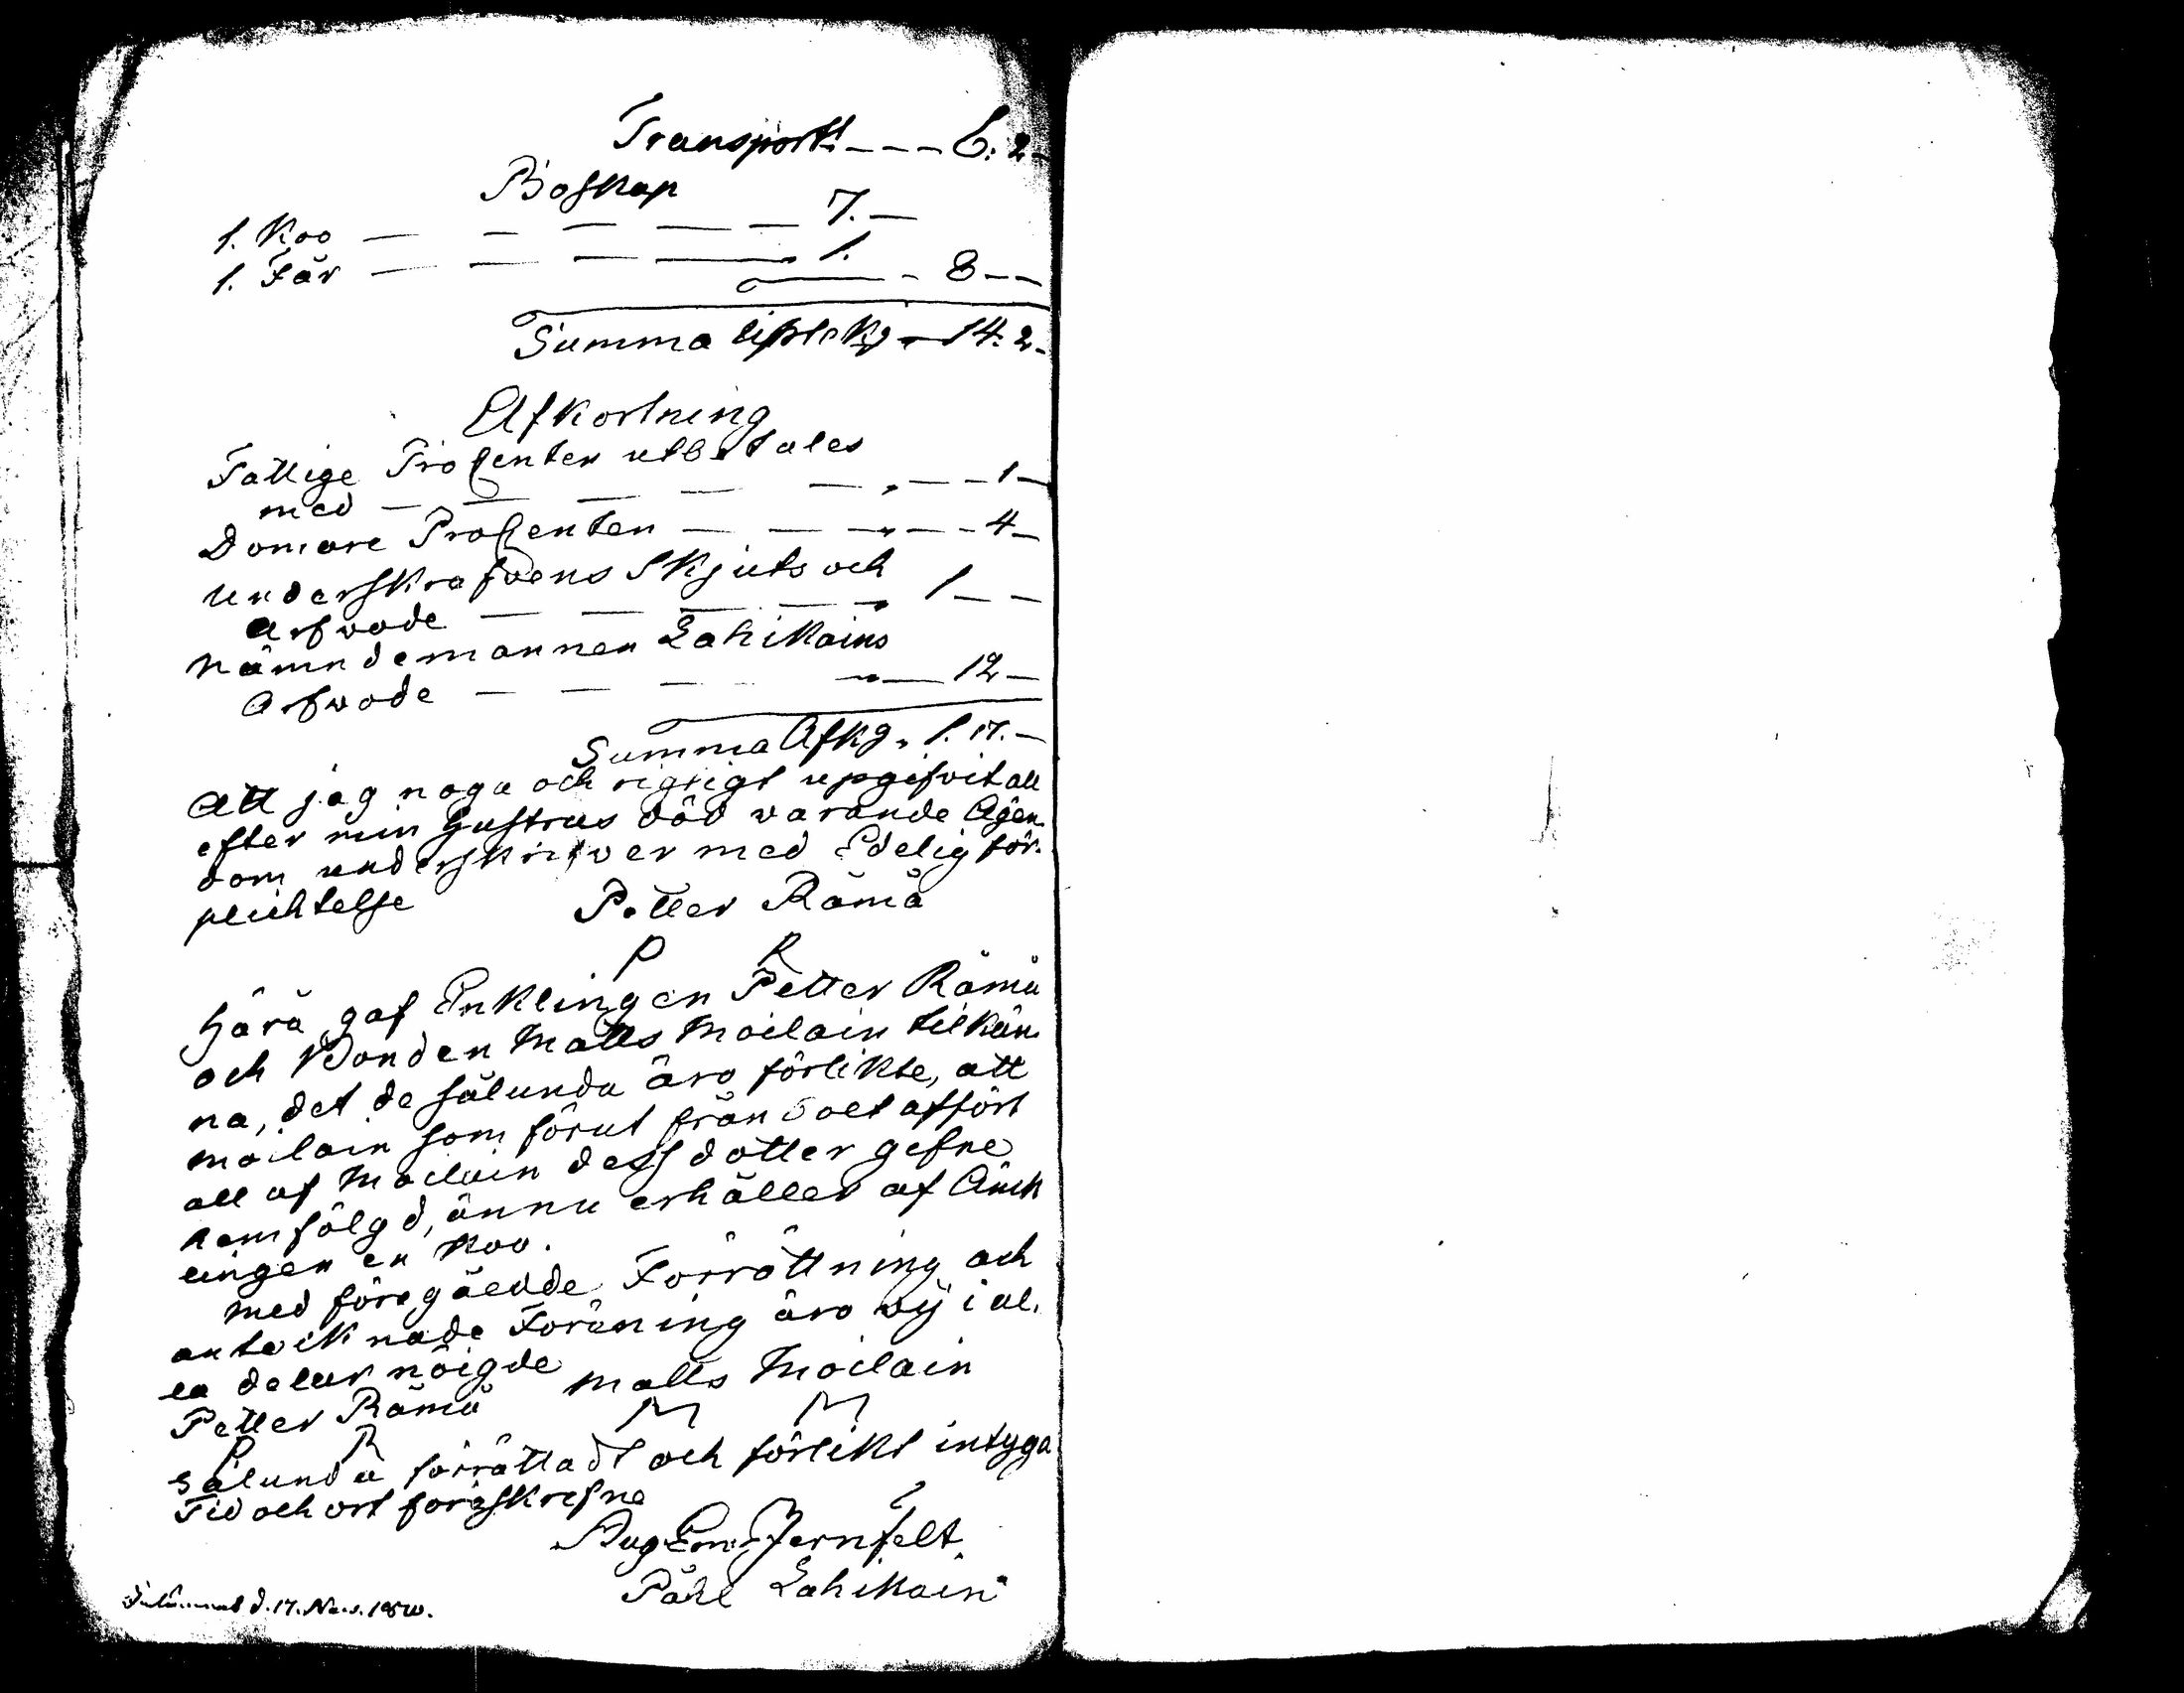 Transport! - - - 6: 2 -
Boskap
1. Koo — — — — — 7. —
1. Får — — — — 1.
— - 8 - -
Summa - 14. 2 -
Afkortning
Fattige Procenten utbetales
med — — — — — - - 1 -
Domare Procenten — — — - - 4 -
underskrefvens Skjuts och
Arfwode — — — — 1 - -
Nämndemannen Lahikains
Arfwode — — — — 12 -
Summa Afkg „ 1. 17. -
Att jag noga och rigtigt upgifvit all
efter min Hustrus död varande Ägen
dom underskrifver med Edelig för-
plichtelse Petter Rämä
P R
Härå gaf Enklingen Petter Rämä
och Bonden Matts Moilain tilkän
na, det de sålunda äro förlikte, att
Moilain som förut från boet affört
all af Moilain dess dotter gefne
hemfölgd, ännu erhåller af Änck
lingen en Koo.
Med föregåedde Förrättning och
antecknade Föräning äro wij i al.
la delar nöigde
Petter Rämä Matts Moilain
P R M M
Sålunda förrättadt och förlikt intyga
Tid och ort föreskrefne
Aug Em: Jernfelt.
Påhl Lahikain
d. 17. Nov.